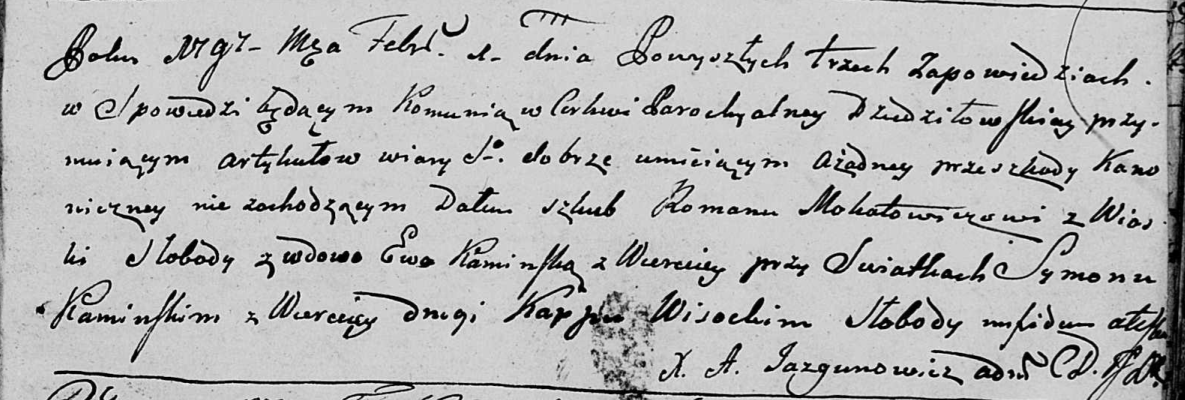 Roku 1797 Mca Febr. 1. dnia Powyszłych trzech Zapowiedziach.
w Spowiedzi będącym Komunią w Cerkwi Parochyalney Dziedziłowskiey przy-
muiącym artykułow wiary S. dobrze umieiącym ażadney przeszkody Kano
niczney nie zachodzącym Dałem szlub Romanu Mohałowiczowi z Wios
ki Słobody z wdowo Ewo Kaminską z Wierciey przy Swiatkach Symonu
Kaminskim z Wierciey drugi Wisockim Słobody
X. A. Jazgunowicz